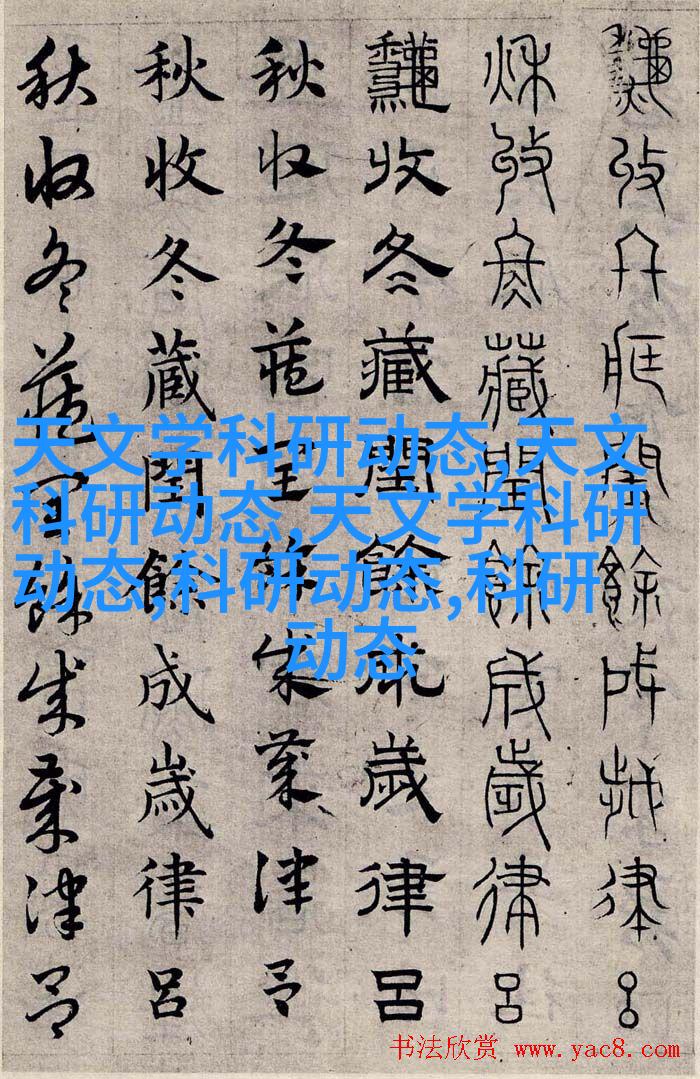 秋收冬藏閏餘成歲律呂
秋收冬藏閏餘成歲律呂
秋收冬藏閏餘成歲律呂
秋收冬藏閏餘成歲律呂
秋收冬藏閏餘成歲律呂
秋收冬藏閏餘成歲律呂
天文学科研动态,天文
科研动态,天文学科研
动态,科研动态,科研
动态
书法欣赏 www.yac8.com